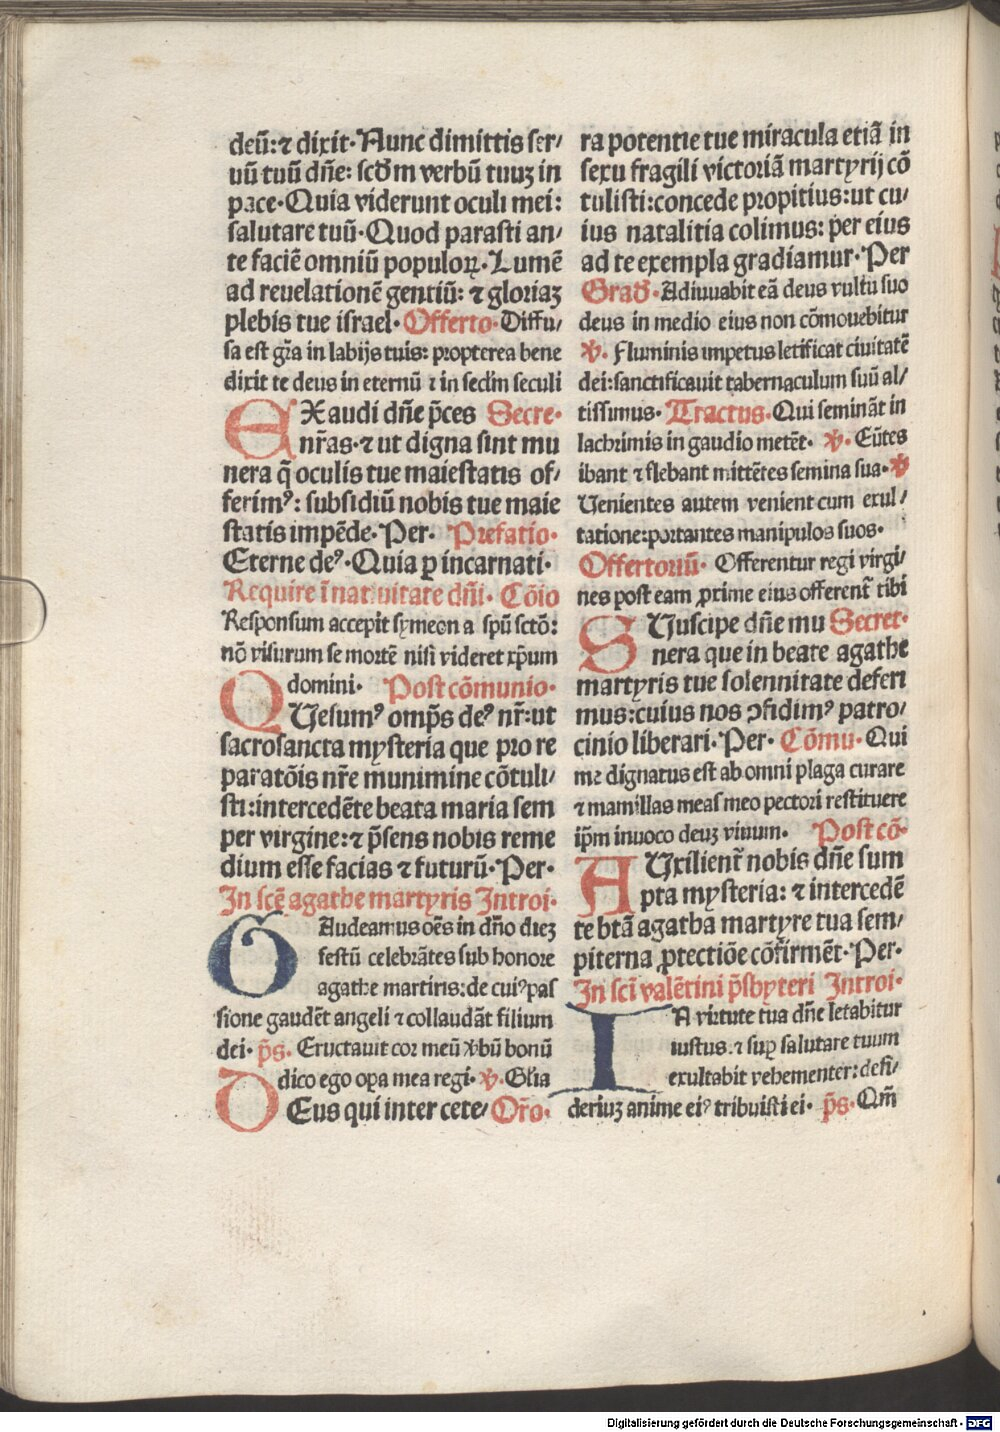 deū: ⁊ dixit. Nunc dimittis ser/
uū tuū dñe: scđm verbū tuuʒ in
pace. Quia viderunt oculi mei:
salutare tuū. Quod parasti an/
te faciē omniū populoꝝ. Lumē
ad reuelationē gentiū: ⁊ gloriaʒ
plebis tue israel. Offerto. Diffu/
sa est gr̄a in labijs tuis: propterea bene
dixit te deus in eternū ⁊ in secl̄m seculi
EXaudi dñe p̄ces Secre.
nr̄as. ⁊ ut digna sint mu
nera q̄ oculis tue maiestatis of/
ferimꝰ: subsidiū nobis tue maie
statis impēde. Per. Prefatio.
Eterne deꝰ. Quia ꝑ incarnati.
Require ī natiuitate dñi. Cōio
Responsum accepit symeon a spū sctō:
nō visurum se mortē nisi videret xp̄um
domini. Post cōmunio.
QUesumꝰ omp̄s deꝰ nr̄: ut
sacrosancta mysteria que pro re
paratōis nr̄e munimine cōtuli/
sti: intercedēte beata maria sem
per virgine: ⁊ p̄sens nobis reme
dium esse facias ⁊ futurū. Per.
In scē agathe martyris Introi.
GAudeamus oēs in dño dieʒ
festū celebrātes sub honore
agathe martiris: de cuiꝰ pas
sione gaudēt angeli ⁊ collaudāt filium
dei. p̄s. Eructauit cor meū v̄bū bonū
dico ego oꝑa mea regi. ℣. Glia
DEus qui inter cete/ Or̄o.
ra potentie tue miracula etiā in
sexu fragili victoriā martyrij cō
tulisti: concede propitius: ut cu/
ius natalitia colimus: per eius
ad te exempla gradiamur. Per
Grad̄. Adiuuabit eā deus vultu suo
deus in medio eius non cōmouebitur
℣. Fluminis impetus letificat ciuitatē
dei: sanctificauit tabernaculum suū al/
tissimus. Tractus. Qui semināt in
lachrimis in gaudio metēt. ℣. Eūtes
ibant ⁊ flebant mittētes semina sua. ℣
Uenientes autem venient cum exul/
tatione: portantes manipulos suos.
Offertoriū. Offerentur regi virgi/
nes post eam ꝓxime eius offerent̄ tibi
SUscipe dñe mu Secret.
nera que in beate agathe
martyris tue solennitate deferi
mus: cuius nos ↄfidimꝰ patro/
cinio liberari. Per. Cōmu. Qui
me dignatus est ab omni plaga curare
⁊ mamillas meas meo pectori restituere
ip̄m inuoco deuʒ viuum. Post cō.
AUxilient̄ nobis dñe sum
pta mysteria: ⁊ intercedē
te btā agatha martyre tua sem/
piterna ꝓtectiōe cōfirmēt. Per.
In scī valētini p̄sbyteri Introi.
IN virtute tua dñe letabitur
iustus. ⁊ suꝑ salutare tuum
exultabit vehementer: desi/
deriuʒ anime eiꝰ tribuisti ei. p̄s. Qm̄
Digitalisierung gefördert durch die Deutsche Forschungsgemeinschaft - DFG